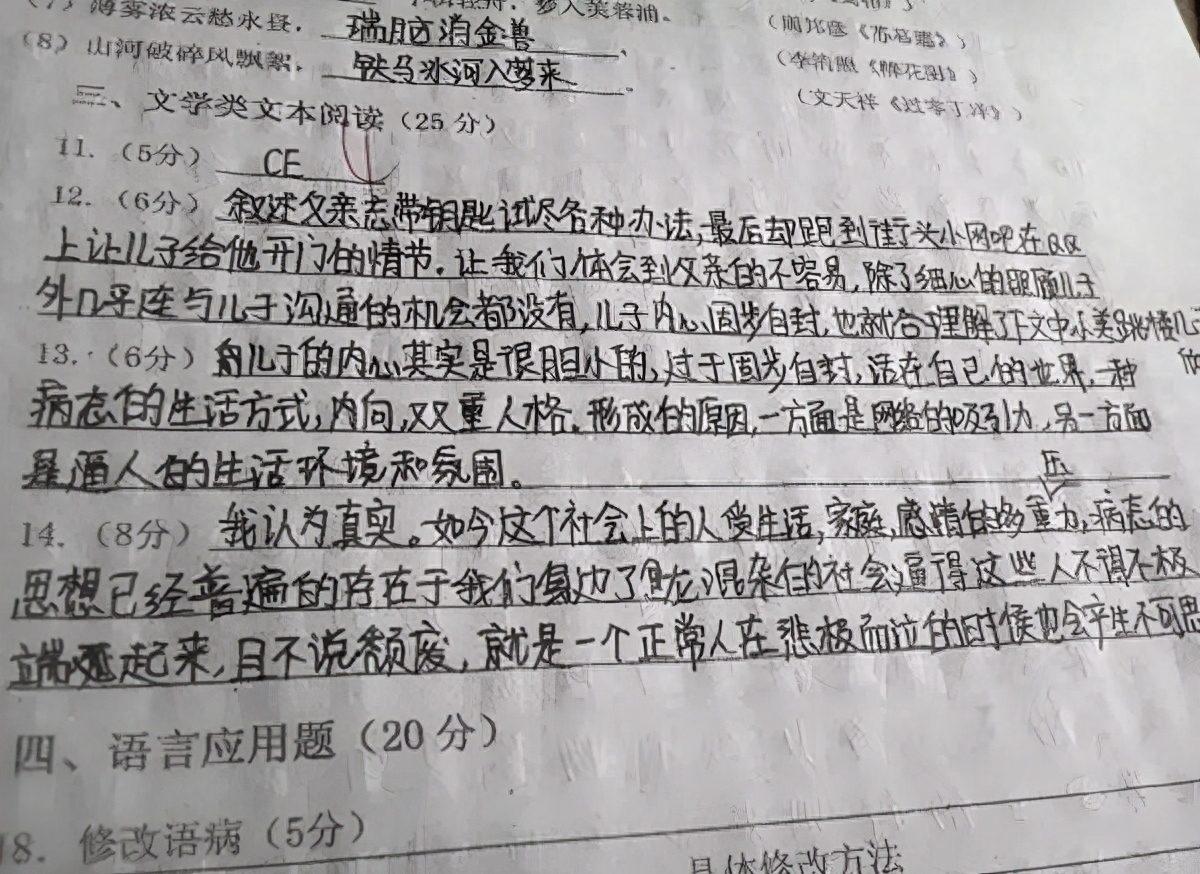 (7) 薄雾浓云愁永昼,瑞脑消金兽、
(8) 山河破碎风飘絮,铁马冰河入梦来。
(李清照《醉花阴》)
(文天祥《过零丁洋》)
三、文学类文本阅读(25分)
11.(5分)CE
12.(6分)叙述父亲忘带钥匙试尽各种办法,最后却跑到街头小网吧在QQ
上让儿子给他开门的情节。让我们体会到父亲的不容易,除了细心的照顾儿子
外几乎连与儿子沟通的机会都没有,儿子内心固步自封,也就合理解了下文中
13.(6分)儿子的内心其实是很胆小的,过于固步自封,活在自己的世界,一种
病态的生活方式,内向,双重人格。形成的原因,一方面是网络的吸引力,另一方面
是逼人的生活环境和氛围。
压
14.(8分)我认为真实。如今这个社会上的人受生活,家庭,感情的多重力,病态的
思想已经普遍的存在于我们身边了,混杂的社会逼得这些人不得不极
端起来,且不说颓废,就是一个正常人在悲极而泣的时候也会产生不可思
四、语言应用题(20分)
18.修改语病(5分)
具体修改方法